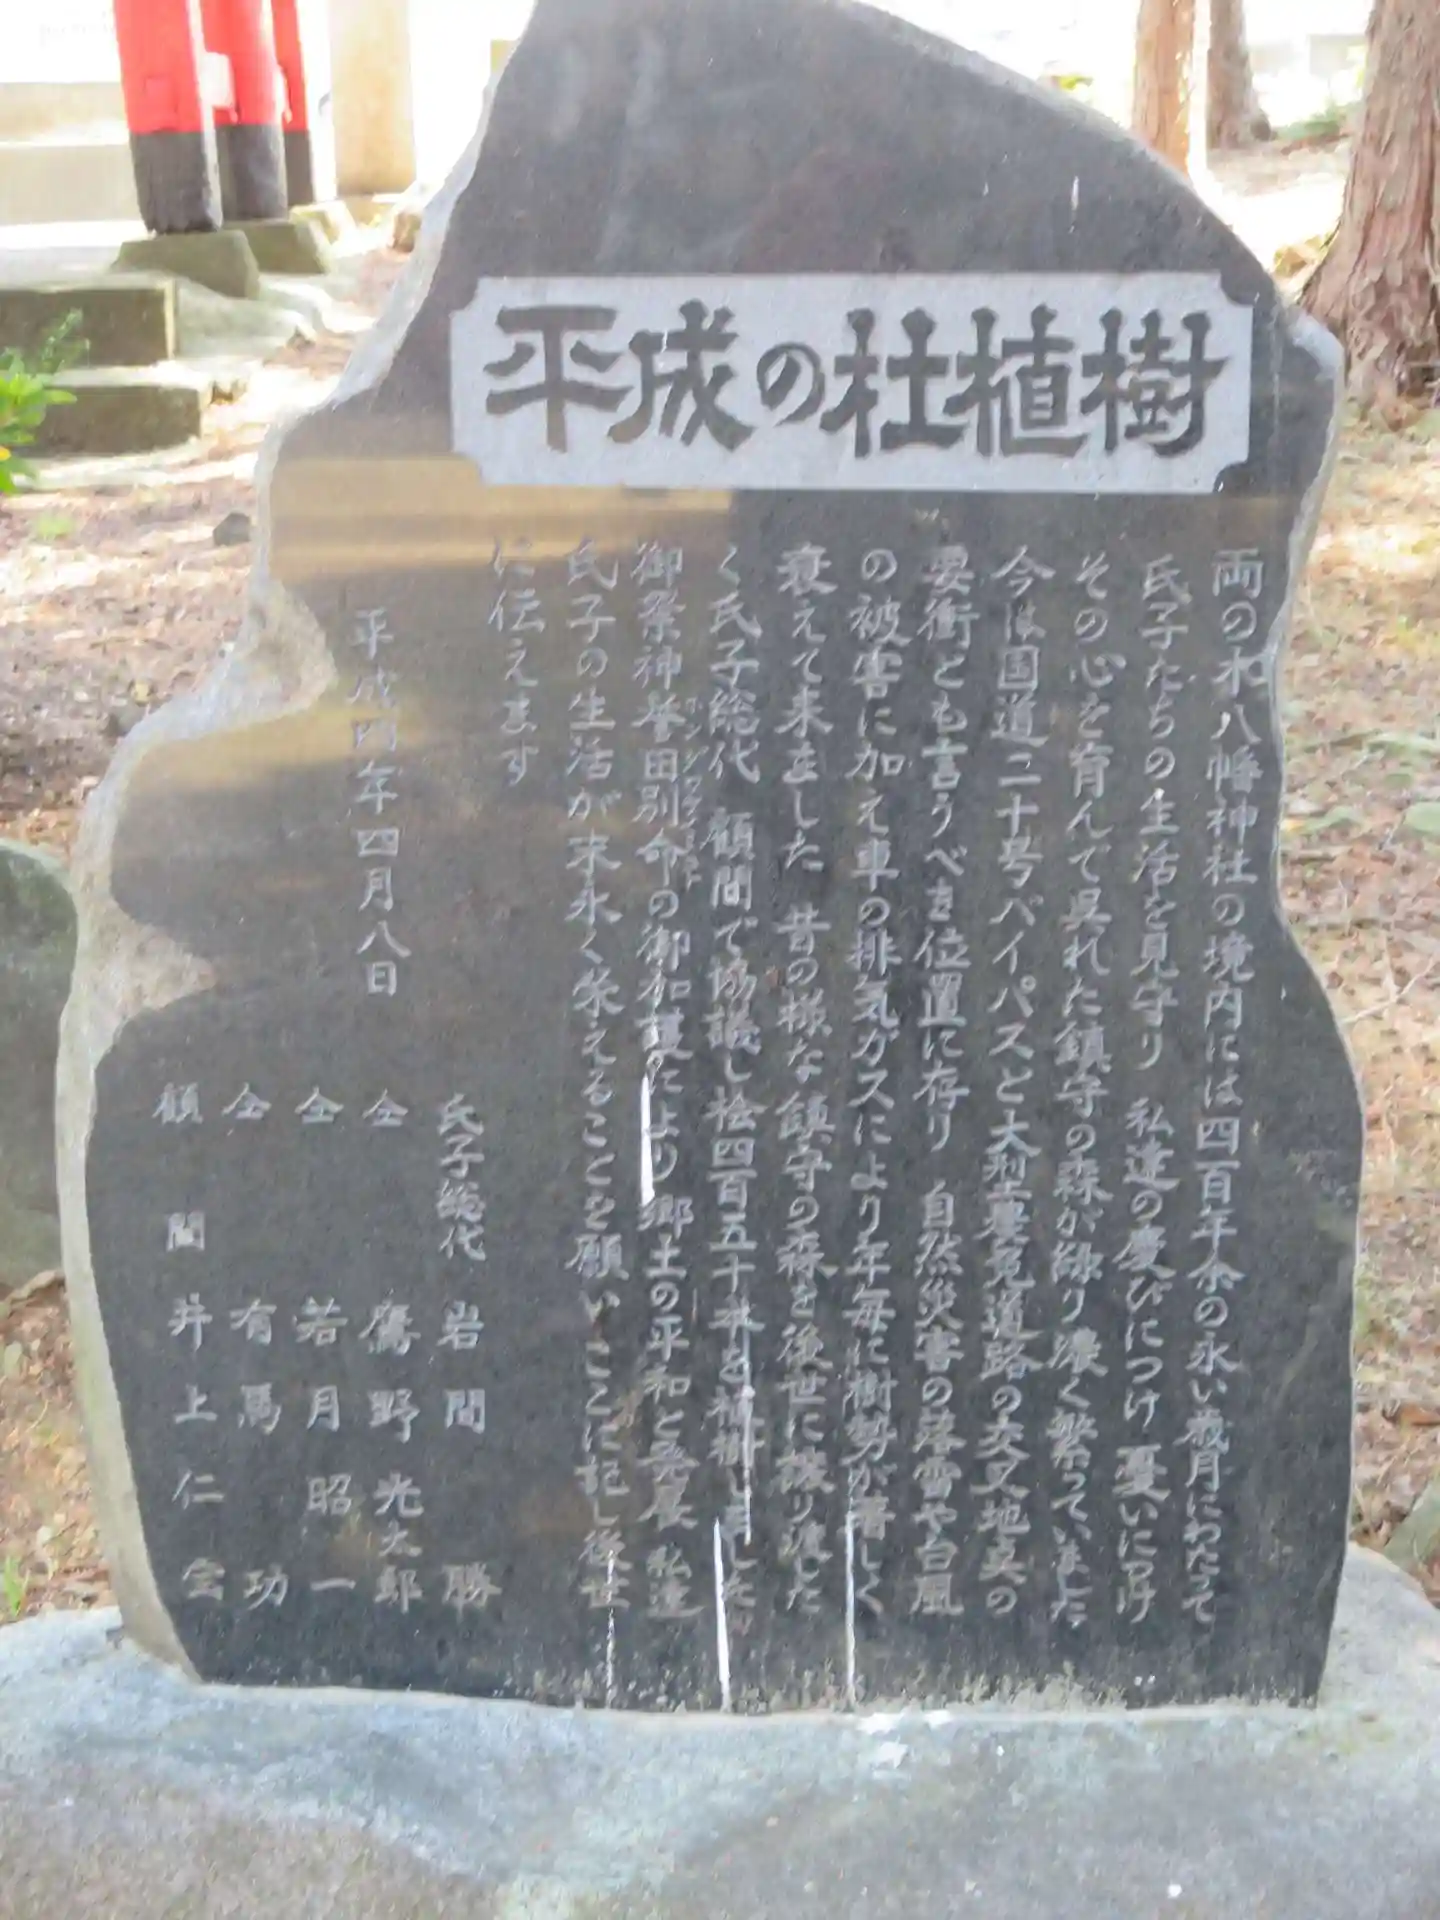 平成の杜植樹
両の木八幡神社の境内には四百年余の永い歳月にわたって
氏子たちの生活を見守り 私達の慶びにつけ憂いにつけ
その心を育んで呉れた鎮守の森が緑り濃く繁っていました
今は国道二十号バイパスと大型農免道路の交叉地点の
要衝とも言うべき位置に存り 自然災害の落雷や台風
の被害に加え車の排気ガスにより年毎に樹勢が著しく
衰えて来ました 昔の様な鎮守の森を後世に譲り渡した
く氏子総代 顧問で協議し桧四百五十本を植樹しました
御祭神誉田別命の御加護により郷土の平和と発展 私達
氏子の生活が末永く栄えることを願いここに記し後世
に伝えます
平成四年四月八日
氏子総代 岩間 勝
仝 鷹野光太郎
仝 若月昭一
仝 有馬 功
顧問 井上仁